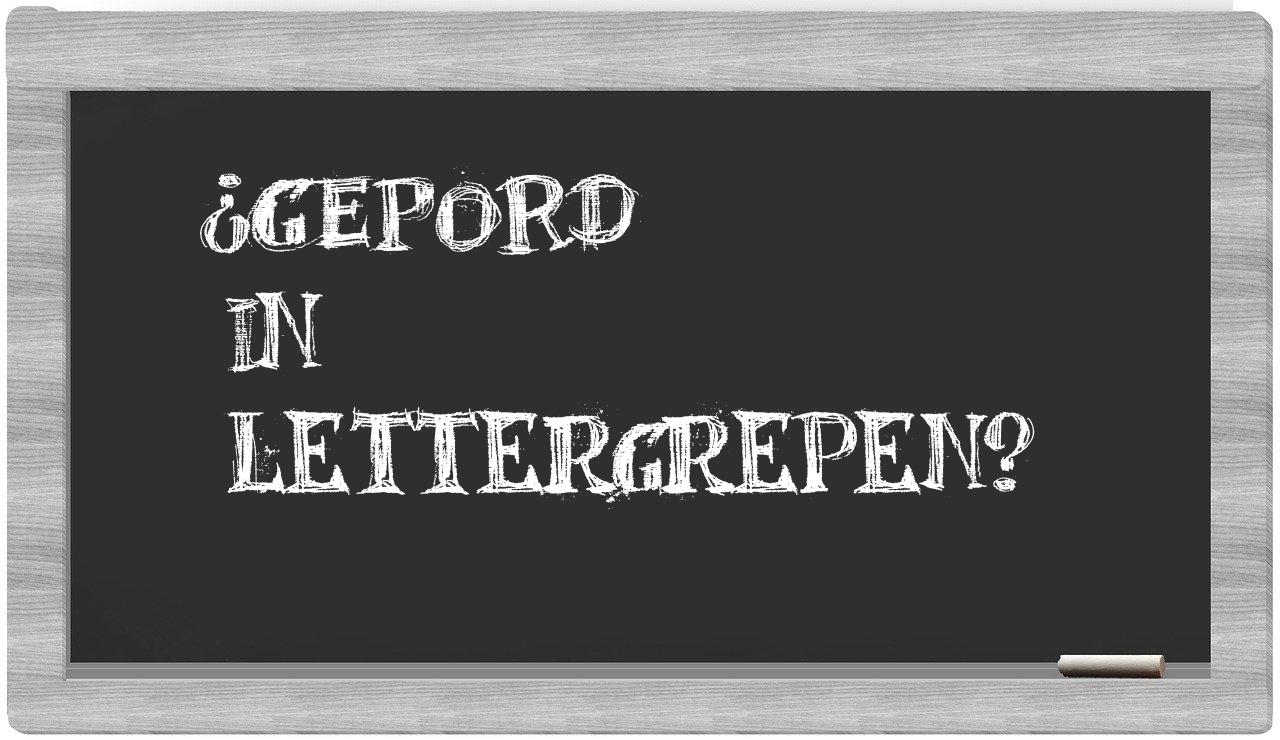 ¿GEPORD
IN
LETTERGREPEN?